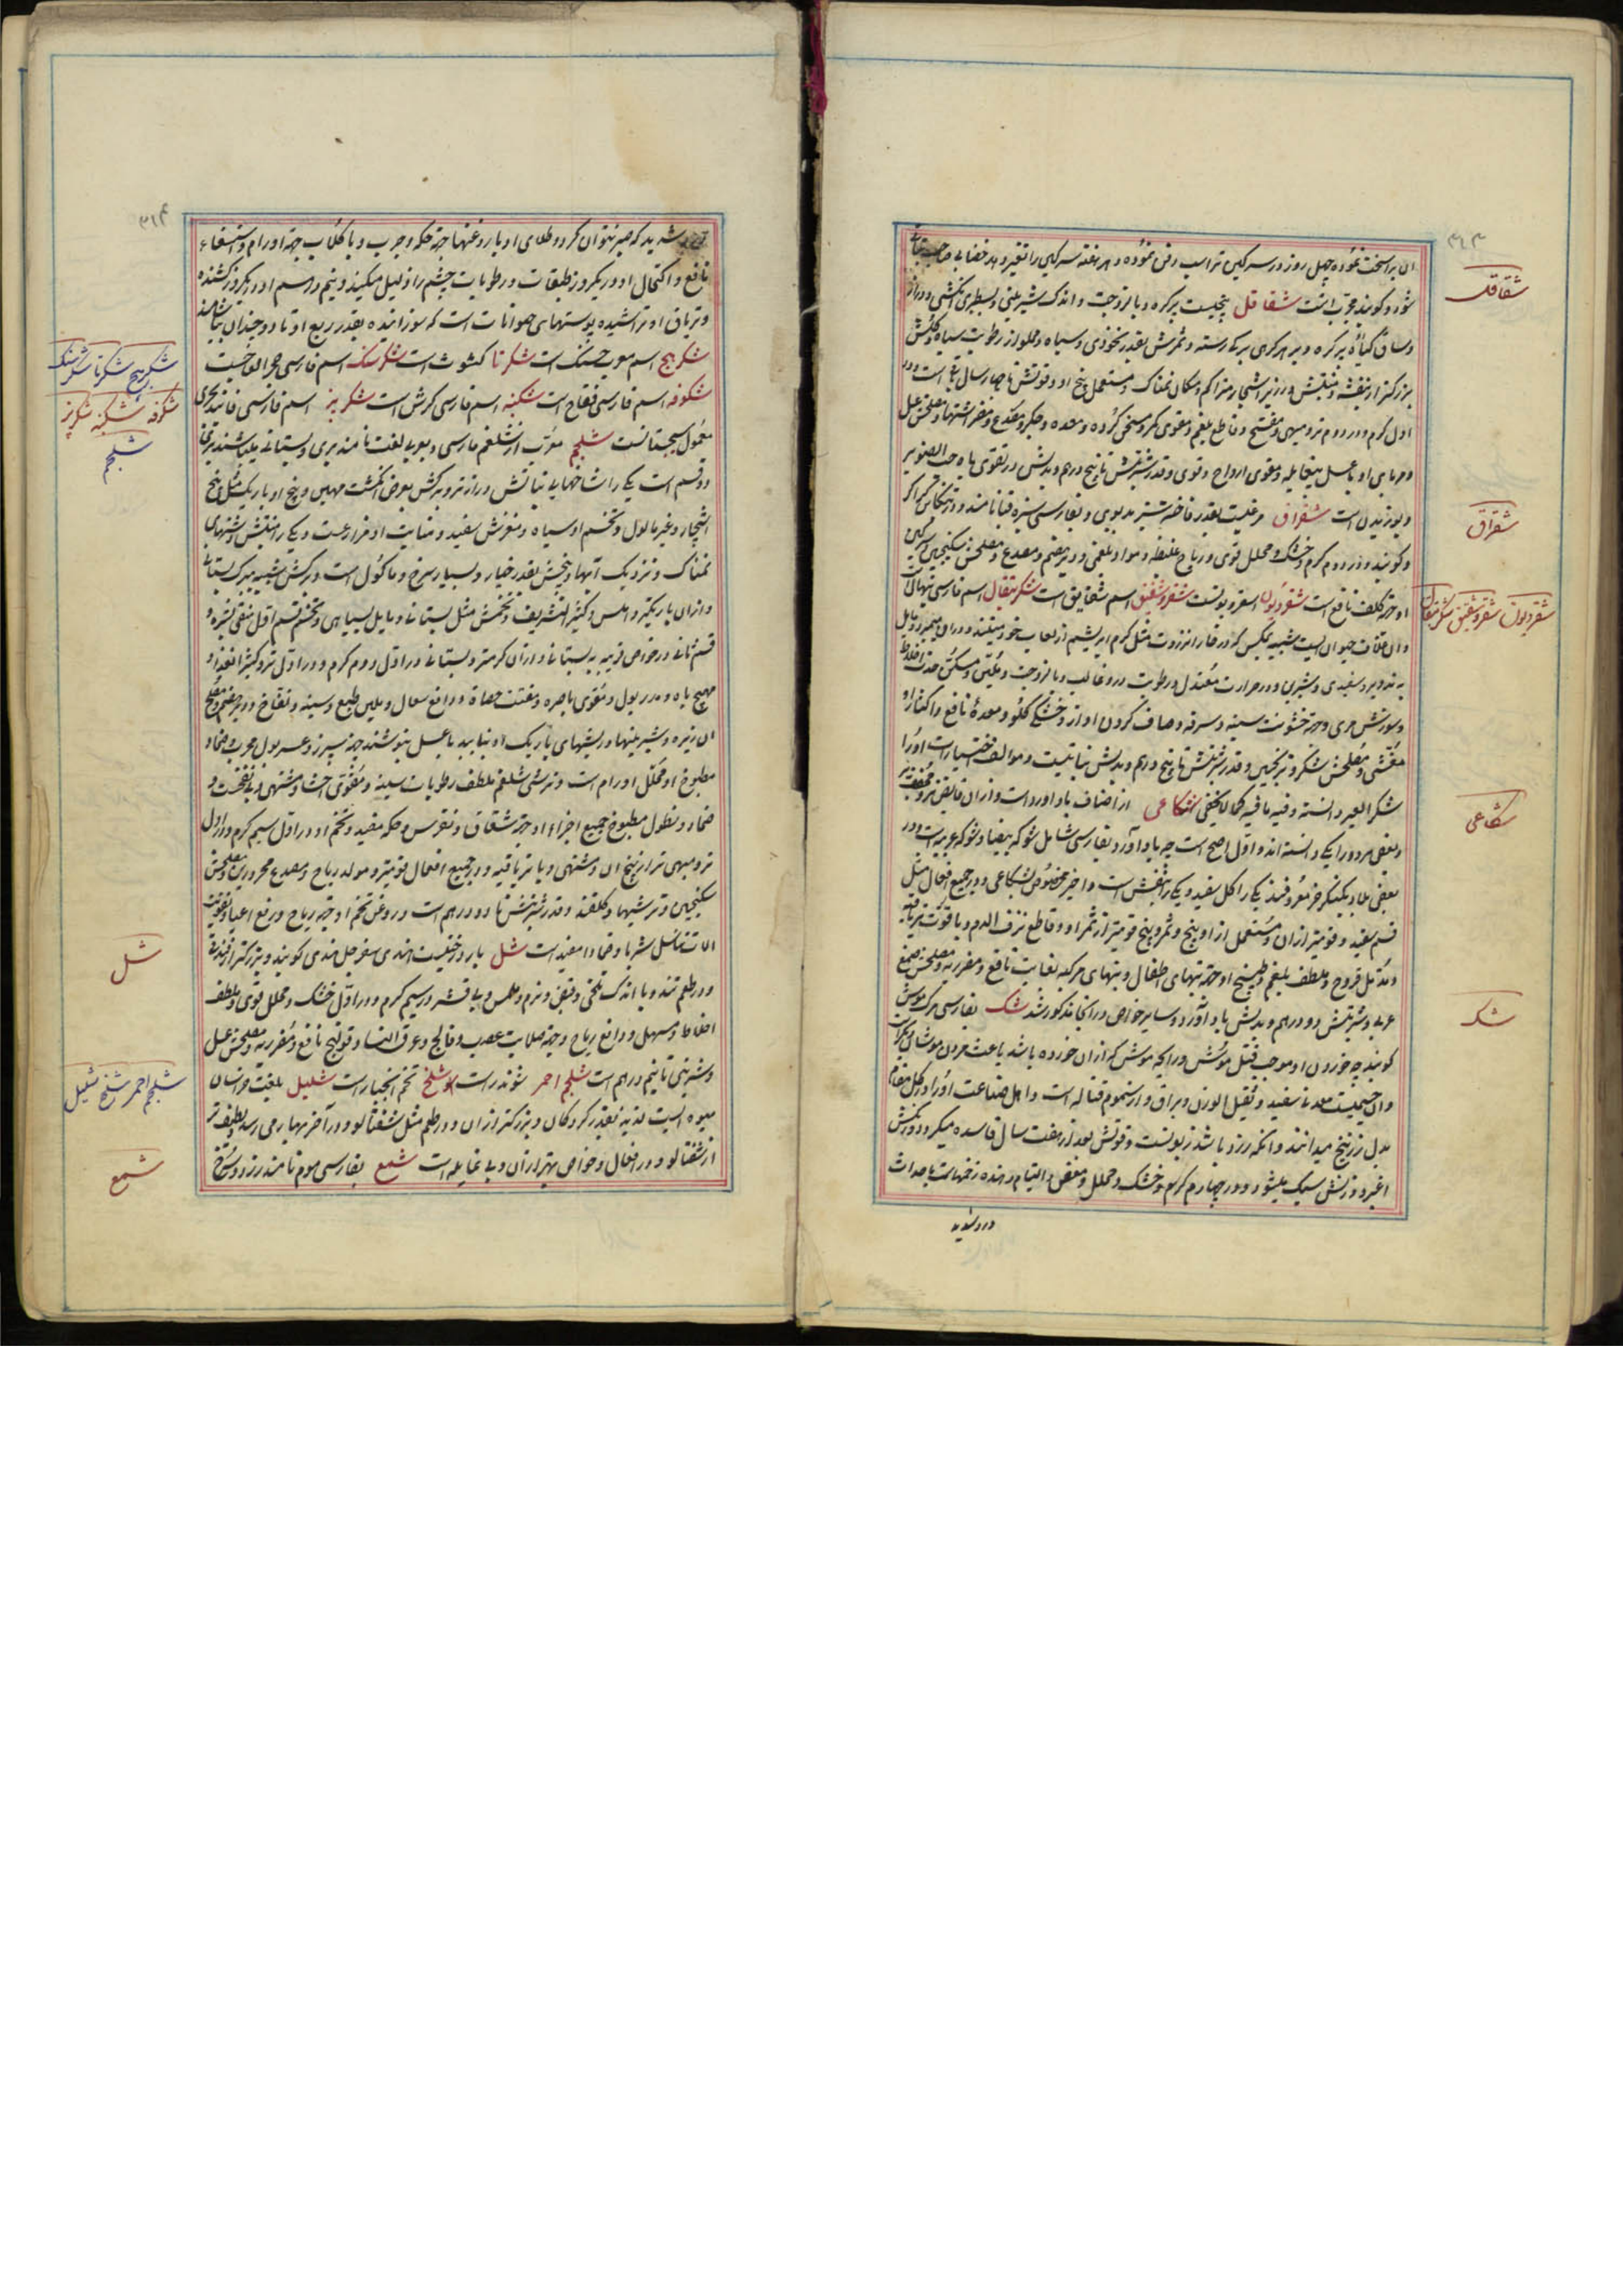 ۳۶۳
ان براسخت نموده چهل روز در سرکین تر اسب دفن نموده و هر هفته سرکین را تغییر دهد خضابی صاحب
شود و کویند مجرب است شقاقل بیخیست پرکره و با لزوجت و اندک شیرینی و بسطبری انکشتی و دراز
وساق کیاه پر کره و بر هر کرهی برکی رسته و ثمرش بقدر نخودی و سیاه و مملو از رطوبت سیاه و کلش
بزرکتر از بنفشه و منبتش در زیر اشجار متراکم و مکان نمناک و مستعمل بیخ او و قوتش تا چهار سال باقی است و در
اول کرم و در دوم تر و مبهی و مفتح و قاطع بلغم و مقوی کمر و مسخن کرده و معده و جکر و مصدع و مضر اشتها و مصلحش عسل
و مربای او با عسل بیغایله و مقوی ارواح و قوی و قدر شربتش تا پنج درهم و بدلش در تقوی باه حب الصنوبر
و بوزیدان است شقراق مرغیست بقدر فاخته سبز بدبوی و بفارسی سبزه قبا نامند و در تنکابن کراکر
و کویند در دوم کرم و خشک و محلل قوی و ریاح غلیظه و مواد بلغمی و دیرهضم و مصدع و مصلحش سکنجبین
او جهة کلف نافع است شقردیون اسقوردیونست شقر و شقیق اسم شقایق است شکر تیغال اسم فارسی
وان غلاف حیوان ایست شبیه بمکس که در خار انزروت مثل کرم ابریشم از لعاب خود میتند و در ان میمیرد و مایل
به تدویر و سفیدی و شیرین و در حرارت معتدل و رطوبت در و غالب و با لزوجت و ملین و مسکن حدت اخلاط
و سوزش مری و جهة خشونت سینه و سرفه و صاف کردن اواز و خشکی کلو و معدهٔ نافع و اکثار او
مغثی و مصلحش شکر و ترنجبین و قدر شربتش تا پنج درهم و بدلش نباتیت و مولف اختیارات او را
شکر العشر دانسته و فیه ما فیه کما لا یخفی شکاعی از اصناف باداورد است و از ان قابض تر و مجفف تر
و بعضی هر دو را یکی دانسته اند و اول اصح است چه باداورد بفارسی شامل شوکه بیضا و شوکه عربیه است و در
بعضی بلاد بکنکر خر معروفند یکی را کل سفید و یکی را بنفش است و اخیر مخصوص بشکاعی و در جمیع افعال مثل
قسم سفید و قویتر از ان و مستعمل از او بیخ و ثمر و بیخ قویتر از ثمر او و قاطع نزف الدم و با قوت تریاقیه
و مدمل قروح و ملطف بلغم و طبیخ او جهة تبهای اطفال و تبهای مرکبه بغایت نافع و مضر ریه و مصلحش صمغ
عربی و شربتش دو درهم و بدلش باداورد و سایر خواص در انجا مذکور شد شک بفارسی مرک موش
کویند چه خوردن او موجب قتل موش و رایحه موش که از ان خورده باشد باعث مردن موشان دیکر است
وان جسمیست معدنی سفید و ثقیل الوزن و براق و از سموم قتاله است و اهل صناعت او را در کل
بدل زرنیخ میدانند و انکه زرد باشد زبونست و قوتش بعد از هفت سال فاسد میکردد و رنکش
اغبر و وزنش سبک میشود و در چهارم کرم و خشک و محلل و معفن و التیام دهنده زخمهاست با حداث
درد شدید
شقاقل
شقراق
شقردیون شقر و شقیق شکر تیغال
شکاعی
شک
۳۶۴
شدید که صبر نتوان کرد و طلای او با روغنها جهة حکه و جرب و با کلاب جهة اورام و استسقاء
نافع و اکتحال او در یکروز طبقات و رطوبات چشم را زایل میکند و نیم درهم او در یکروز کشنده
و تریاق او تراشیده پوستهای حیوانات است که سوزانیده بقدر ربع او تا دو چندان بیاشامند
شکربج اسم عربی حسک است شکرتا کشوث است شکرسنک اسم فارسی حجر العاجیست
شکوفه اسم فارسی فقاح است شکنبه اسم فارسی کرش است شکر پیز اسم فارسی فانید سجزی
معمول سیستانست شلجم معرب از شلغم فارسی و بعربی لفت نامند بری و بستانی میباشند بری
دو قسم است یکی را شاخهای نباتش دراز تر و برکش بعرض انکشت مهین و بیخ او باریک مثل بیخ
اشجار و غیر ماکول و تخم او سیاه و مغزش سفید و منابت او مزارعست و یکی را منبتش زمینهای
نمناک و نزدیک آبها و بیخش بقدر خیار و بسیار سرخ و ماکول است و برکش شبیه ببرک بستانی
و از ان باریکتر و املس و کثیر التشریف و تخمش مثل بستانی و مایل بسیاهی و تخم قسم اول منقی بشره و
قسم ثانی در خواص قریب به بستانی و از ان کرمتر و بستانی در اول دوم کرم و در اول تر و کثیر الغذا و
مهیج باه و مدر بول و مقوی باصره و مفتت حصاة و رافع سعال و ملین طبع و سینه و نفاخ و دیرهضم و مصلح
ان زیره و شیرینیها و ریشهای باریک او نیابید با عسل بنوشند جهة سپرز و عسر بول مجرب و ضماد
مطبوخ او محلل اورام است و ترشی شلغم ملطف رطوبات سینه و مقوی احشا و مشتهی و بی نفخست و
ضماد و نطول مطبوخ جمیع اجزاء او جهة شقاق و نقرس و حکه مفید و تخم او در اول سیم کرم و در اول
تر و مبهی تر از بیخ ان و مشتهی و با تریاقیه و در جمیع افعال قویتر و مولد ریاح و مصدع محرورین و مصلحش
سکنجبین و ترشیها و کلقند و قدر شربتش تا دو درهم است و روغن تخم او جهة ریاح و رفع اعیا و تقویت
الات تناسل شربا و ضمادا مفید است شل بار درختیست هندی سفرجل هندی کویند و بزرکتر از فندق
و در طعم تند و با اندک تلخی و قبض و نرم و املس و بی قشر در سیم کرم و در اول خشک و محلل قوی و ملطف
اخلاط و مسهل و رافع ریاح و جهة صلابت عصب و فالج و عرق النسا و قولنج نافع و مضر ریه و مصلحش عسل
و شربتی تا نیم درهم است شلجم احمر شوندر است شلخ تخم انجبار است شلیل بلغت خراسان
میوه ایست لذیذ بقدر کردکان و بزرکتر از ان و در طعم مثل شفتالو و در آخر بهار می رسد لطیف تر
از شفتالو و در افعال و خواص بهتر از ان و بی غایله است شمع بفارسی موم نامند زرد و سرخ
شکربج شکرتا شکرسنک
شکوفه شکنبه شکرپیز
شلجم
شل
شلجم احمر شلخ شلیل
شمع